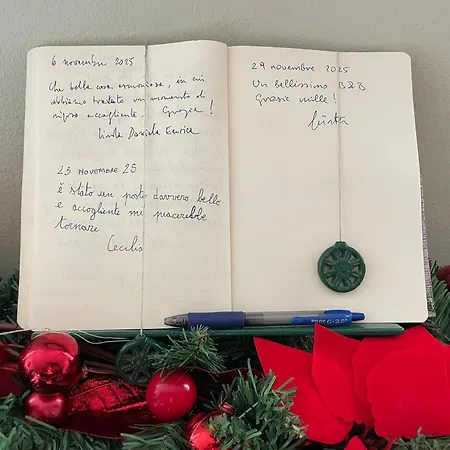 6 novembre 2025
Che bella casa armoniosa, in cui
abbiamo trovato un momento di
riposo accogliente. Grazie!
Linda Daniela Enrica
23 NOVEMBRE 25
è stato un posto davvero bello
e accogliente mi piacerebbe
tornare
Cecilia
29 novembre 2025
Un bellissimo B&B
Grazie mille!
PILOT G-2 07